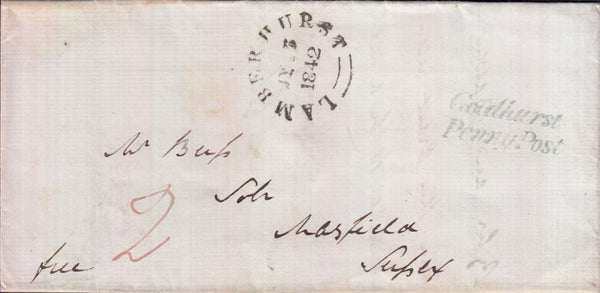 LAMBERHURST
1842
Goudhurst
Penny Post
Mr Buss
Solr
Mayfield
Sussex
free
2